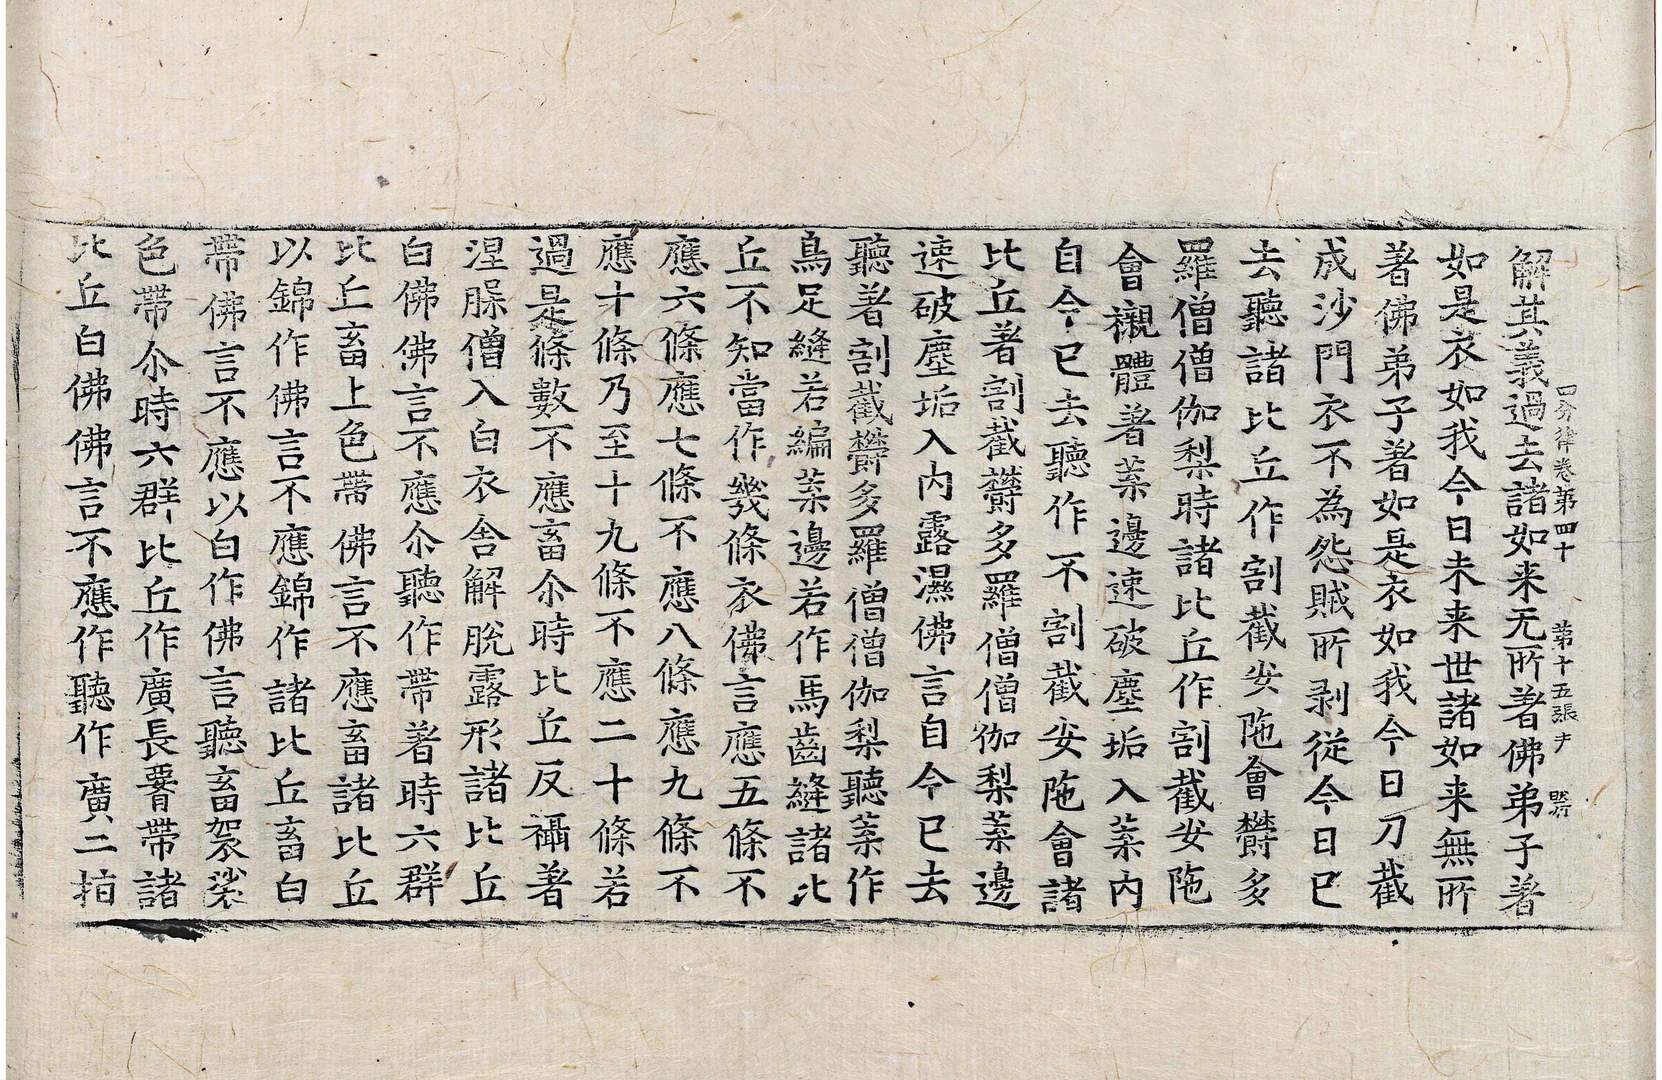 四分律卷第四十 第十五張 才
解其義過去諸如来无所著佛弟子著
如是衣如我今日未来世諸如来無所
著佛弟子著如是衣如我今日刀截
成沙門衣不為怨賊所剥從今日已
去聽諸比丘作割截安陁會欝多
羅僧僧伽梨時諸比丘作割截安陁
會襯體著葉邊速破塵垢入葉内
自今已去聽作不割截安陁會諸
比丘著割截欝多羅僧僧伽梨葉邊
速破塵垢入内露濕佛言自今已去
聽著割截欝多羅僧僧伽梨聽葉作
鳥足縫若編葉邊若作馬齒縫諸比
丘不知當作幾條衣佛言應五條不
應六條應七條不應八條應九條不
應十條乃至十九條不應二十條若
過是條數不應畜尒時比丘反襵著
涅脲僧入白衣舍解脫露形諸比丘
白佛佛言不應尒聽作帶著時六群
比丘畜上色帶佛言不應畜諸比丘
以錦作佛言不應錦作諸比丘畜白
帶佛言不應以白作佛言聽畜袈裟
色帶尒時六群比丘作廣長𦝫帶諸
比丘白佛佛言不應作聽作廣二指